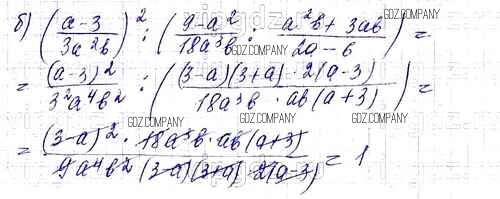 б) ((a-3)/(3a²b))² : ((9-a²)/(18a³b) : (a²b+3ab)/(2a-6)) =
= (a-3)²/(3²a⁴b²) : ((3-a)(3+a) · 2(a-3)/(18a³b · ab(a+3))) =
= (3-a)² · 18a³b · ab(a+3)/(9a⁴b² (3-a)(3+a) · 2(a-3)) = 1
GDZ.COMPANY
GDZ.COMPANY
GDZ.COMPANY
GDZ.COMPANY
GDZ.COMPANY
GDZ.COMPANY